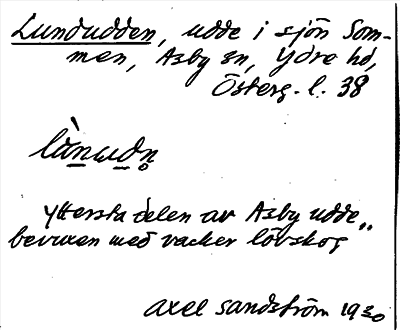 Lundudden, udde i sjön Som-
men, Asby sn, Ydre hd,
Österg. l. 38
lànudn̥
Yttersta delen av Asby udde,,
bevuxen med vacker lövskog
Axel Sandström 1930